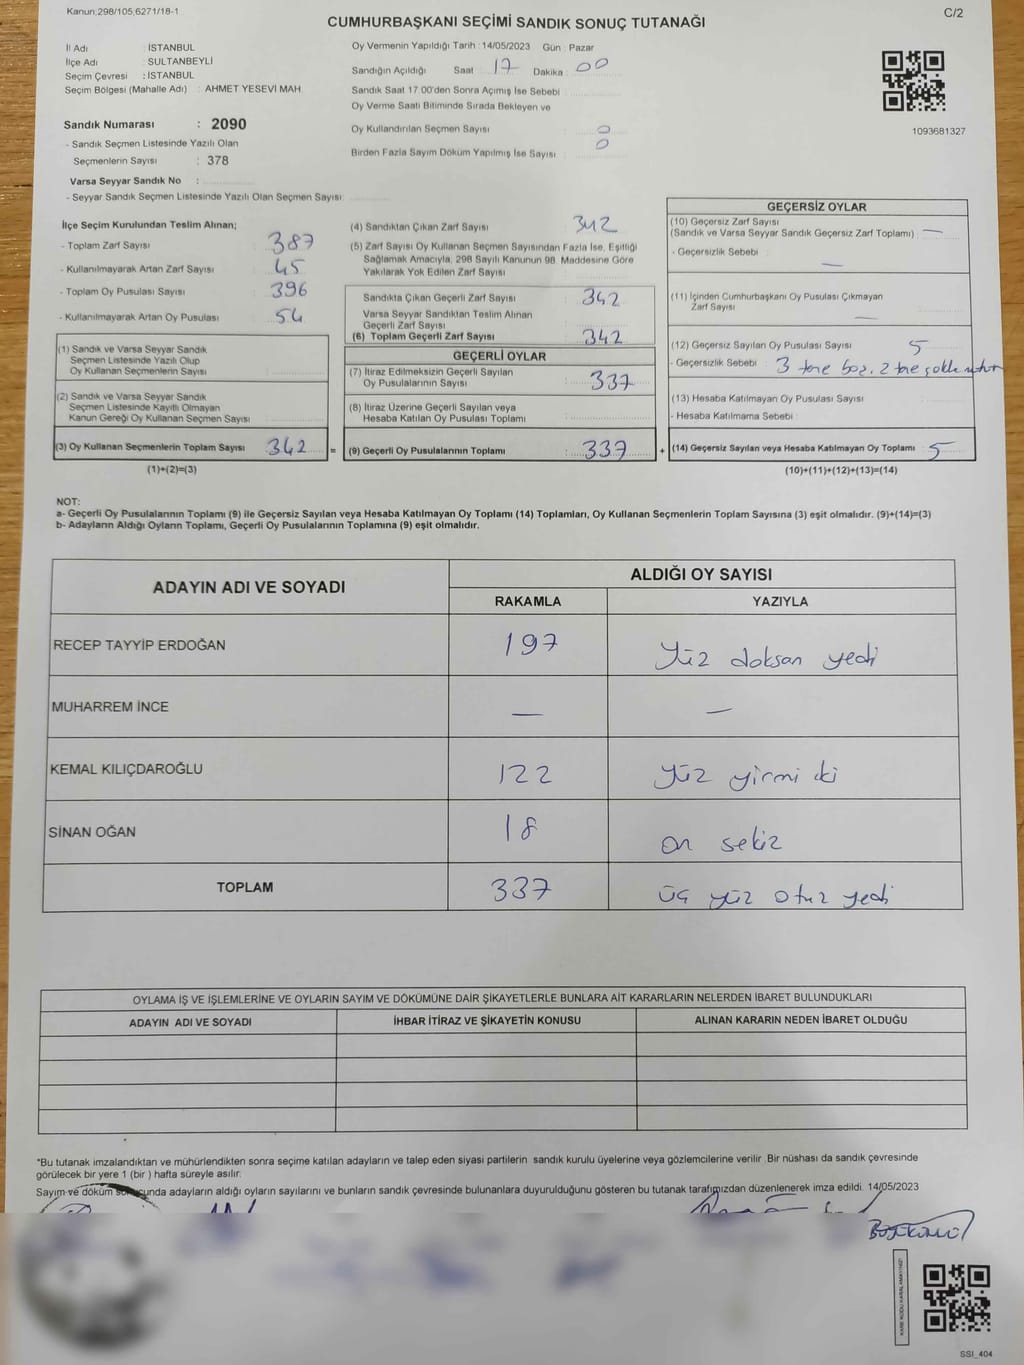 Kanun;298/105,6271/18-1
C/2
CUMHURBAŞKANI SEÇİMİ SANDIK SONUÇ TUTANAĞI
İl Adı : İSTANBUL
İlçe Adı : SULTANBEYLİ
Seçim Çevresi : İSTANBUL
Seçim Bölgesi (Mahalle Adı) : AHMET YESEVİ MAH.
Sandık Numarası : 2090
- Sandık Seçmen Listesinde Yazılı Olan
Seçmenlerin Sayısı : 378
Varsa Seyyar Sandık No :
- Seyyar Sandık Seçmen Listesinde Yazılı Olan Seçmen Sayısı:
Oy Vermenin Yapıldığı Tarih : 14/05/2023 Gün : Pazar
Sandığın Açıldığı Saat : 17 Dakika : 00
Sandık Saat 17.00'den Sonra Açımış İse Sebebi :
Oy Verme Saati Bitiminde Sırada Bekleyen ve
Oy Kullandırılan Seçmen Sayısı : 0
Birden Fazla Sayım Döküm Yapılmış İse Sayısı : 0
1093681327
İlçe Seçim Kurulundan Teslim Alınan;
- Toplam Zarf Sayısı : 387
- Kullanılmayarak Artan Zarf Sayısı : 45
- Toplam Oy Pusulası Sayısı : 396
- Kullanılmayarak Artan Oy Pusulası : 54
(1) Sandık ve Varsa Seyyar Sandık
Seçmen Listesinde Yazılı Olup
Oy Kullanan Seçmenlerin Sayısı :
(2) Sandık ve Varsa Seyyar Sandık
Seçmen Listesinde Kayıtlı Olmayan
Kanun Gereği Oy Kullanan Seçmen Sayısı :
(3) Oy Kullanan Seçmenlerin Toplam Sayısı : 342
(1)+(2)=(3)
=
(4) Sandıktan Çıkan Zarf Sayısı : 342
(5) Zarf Sayısı Oy Kullanan Seçmen Sayısından Fazla İse, Eşitliği
Sağlamak Amacıyla, 298 Sayılı Kanunun 98. Maddesine Göre
Yakılarak Yok Edilen Zarf Sayısı :
Sandıkta Çıkan Geçerli Zarf Sayısı : 342
Varsa Seyyar Sandıktan Teslim Alınan
Geçerli Zarf Sayısı :
(6) Toplam Geçerli Zarf Sayısı : 342
GEÇERLİ OYLAR
(7) İtiraz Edilmeksizin Geçerli Sayılan
Oy Pusulalarının Sayısı : 337
(8) İtiraz Üzerine Geçerli Sayılan veya
Hesaba Katılan Oy Pusulası Toplamı :
(9) Geçerli Oy Pusulalarının Toplamı : 337
+
GEÇERSİZ OYLAR
(10) Geçersiz Zarf Sayısı
(Sandık ve Varsa Seyyar Sandık Geçersiz Zarf Toplamı) : —
- Geçersizlik Sebebi : —
(11) İçinden Cumhurbaşkanı Oy Pusulası Çıkmayan
Zarf Sayısı : —
(12) Geçersiz Sayılan Oy Pusulası Sayısı : 5
- Geçersizlik Sebebi : 3 tane boş, 2 tane
(13) Hesaba Katılmayan Oy Pusulası Sayısı :
- Hesaba Katılmama Sebebi :
(14) Geçersiz Sayılan veya Hesaba Katılmayan Oy Toplamı : 5
(10)+(11)+(12)+(13)=(14)
NOT:
a- Geçerli Oy Pusulalarının Toplamı (9) ile Geçersiz Sayılan veya Hesaba Katılmayan Oy Toplamı (14) Toplamları, Oy Kullanan Seçmenlerin Toplam Sayısına (3) eşit olmalıdır. (9)+(14)=(3)
b- Adayların Aldığı Oyların Toplamı, Geçerli Oy Pusulalarının Toplamına (9) eşit olmalıdır.
ADAYIN ADI VE SOYADI ALDIĞI OY SAYISI
RAKAMLA YAZIYLA
RECEP TAYYİP ERDOĞAN 197 Yüz doksan yedi
MUHARREM İNCE — —
KEMAL KILIÇDAROĞLU 122 Yüz yirmi iki
SİNAN OĞAN 18 on sekiz
TOPLAM 337 üç yüz otuz yedi
OYLAMA İŞ VE İŞLEMLERİNE VE OYLARIN SAYIM VE DÖKÜMÜNE DAİR ŞİKAYETLERLE BUNLARA AİT KARARLARIN NELERDEN İBARET BULUNDUKLARI
ADAYIN ADI VE SOYADI İHBAR İTİRAZ VE ŞİKAYETİN KONUSU ALINAN KARARIN NEDEN İBARET OLDUĞU
*Bu tutanak imzalandıktan ve mühürlendikten sonra seçime katılan adayların ve talep eden siyasi partilerin sandık kurulu üyelerine veya gözlemcilerine verilir. Bir nüshası da sandık çevresinde
görülecek bir yere 1 (bir ) hafta süreyle asılır.
Sayım ve döküm sonucunda adayların aldığı oyların sayılarını ve bunların sandık çevresinde bulunanlara duyurulduğunu gösteren bu tutanak tarafımızdan düzenlenerek imza edildi. 14/05/2023
SSI_404